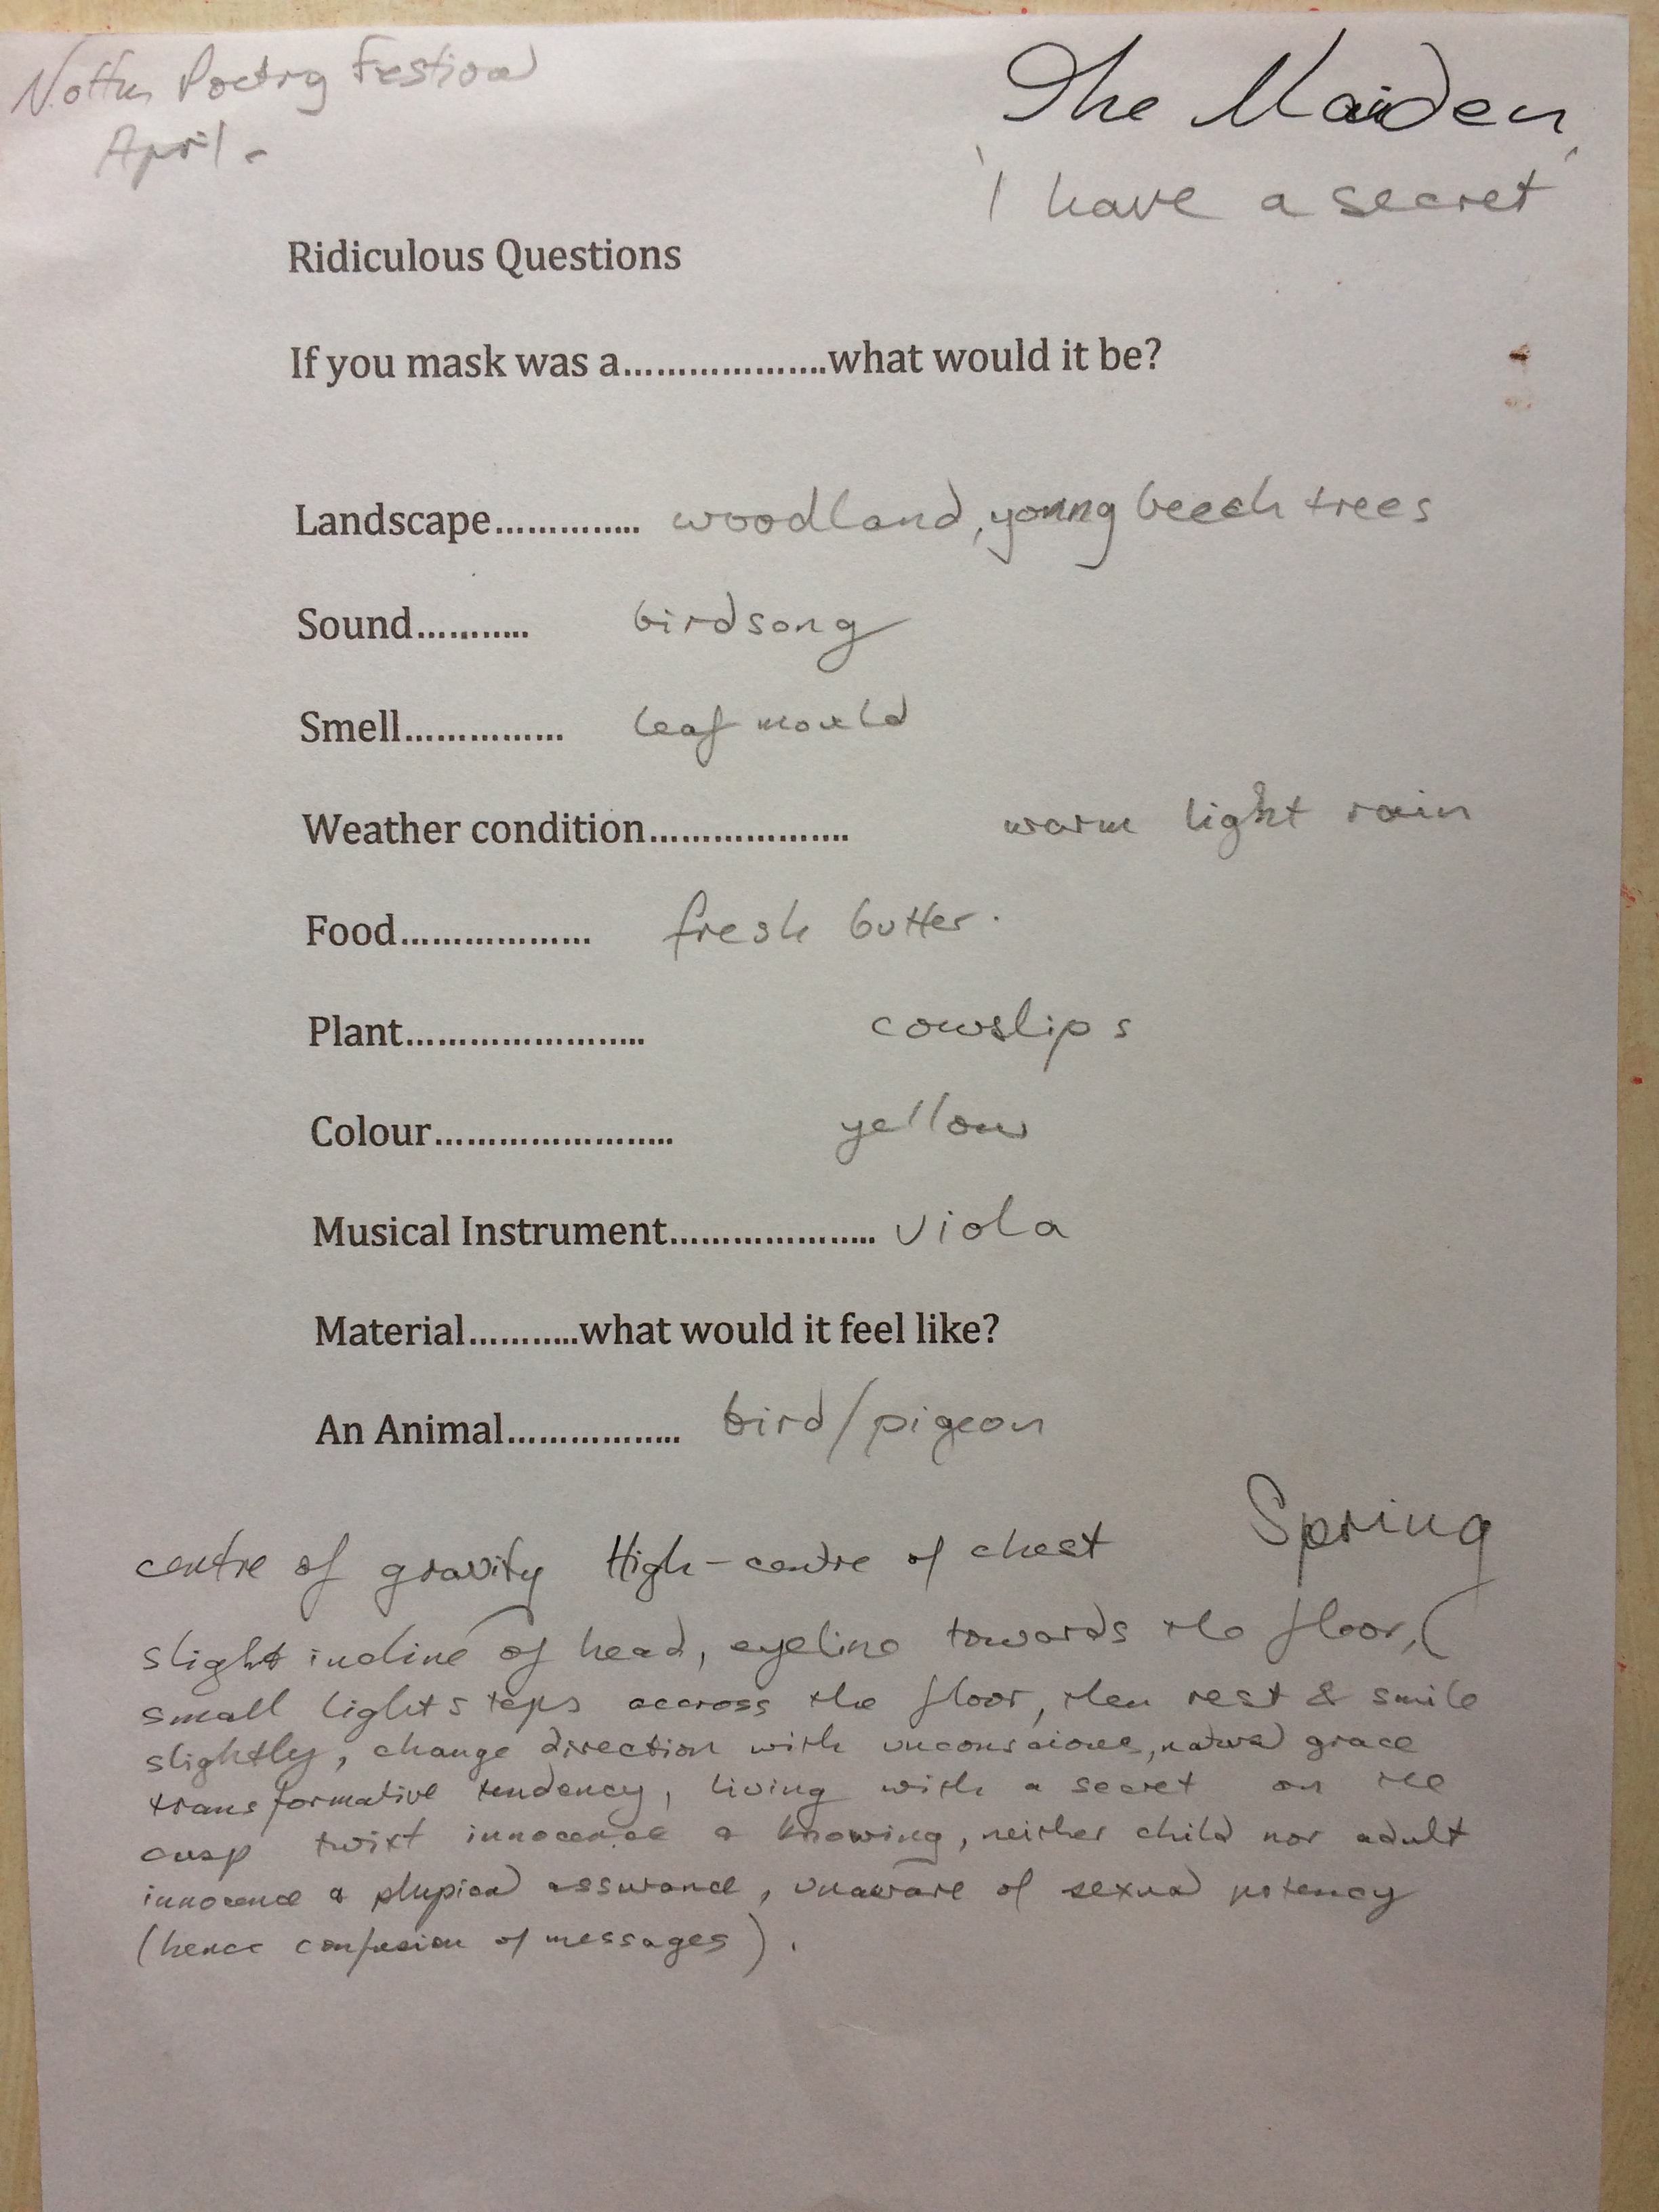 Nottm Poetry Festival
April -
The Maiden
'I have a secret'
Ridiculous Questions
If you mask was a....................what would it be?
Landscape.............. woodland, young beech trees
Sound........... birdsong
Smell................ leaf mould
Weather condition.................... warm light rain
Food................... fresh butter.
Plant........................ cowslips
Colour........................ yellow
Musical Instrument..................... viola
Material...........what would it feel like?
An Animal................. bird/pigeon
Spring
centre of gravity High-centre of chest
slight incline of head, eyeline towards the floor, (
small light steps accross the floor, then rest & smile
slightly, change direction with unconscious, natural grace
transformative tendency, living with a secret on the
cusp twixt innocence & knowing, neither child nor adult
innocence & physical assurance, unaware of sexual potency
(hence confusion of messages).